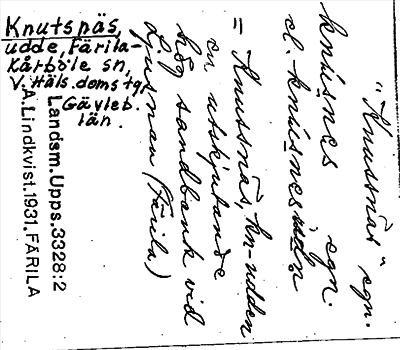 Knutsnäs,
udde, Färila-
Kårböle sn,
V. Häls. doms tg.
Gävleb.
län.
Landsm. Upps. 3328:2
A. Lindkvist. 1931. FÄRILA
"Knussnäs" egn.
knúsnes egn.
el. knúsnesudn
= Knussnäs, kn-udden
en utskjutande
hög sandbank vid
Ljusnan (Färila)